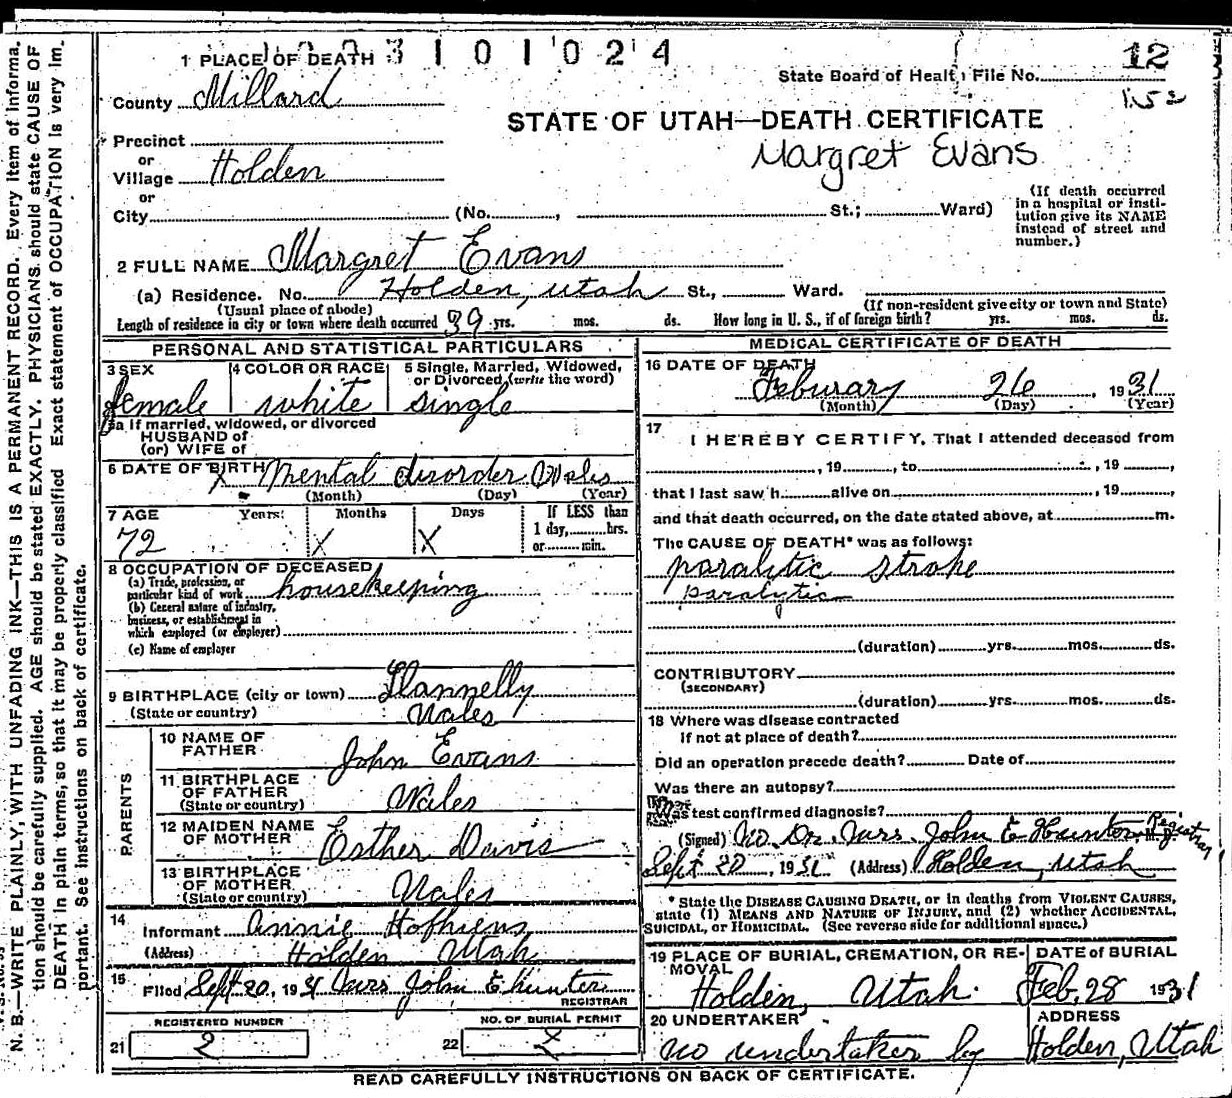 1 PLACE OF DEATH 3 1 0 1 0 2 4
12
State Board of Health File No.
152
County Millard
STATE OF UTAH—DEATH CERTIFICATE
Margret Evans
Precinct
or
Village Holden
or
City (No. , St.; Ward)
(If death occurred in a hospital or insti-
tution give its NAME instead of street and number.)
2 FULL NAME Margret Evans
(a) Residence. No. Holden, Utah St., Ward.
(Usual place of abode) (If non-resident give city or town and State)
Length of residence in city or town where death occurred 39 yrs. mos. ds. How long in U. S., if of foreign birth? yrs. mos. ds.
PERSONAL AND STATISTICAL PARTICULARS
3 SEX female
4 COLOR OR RACE white
5 Single, Married, Widowed, or Divorced, (write the word) single
5a If married, widowed, or divorced
HUSBAND of
(or) WIFE of
6 DATE OF BIRTH X Mental disorder Wales
(Month) (Day) (Year)
7 AGE Years Months Days If LESS than
72 X X 1 day, hrs.
or min.
8 OCCUPATION OF DECEASED
(a) Trade, profession, or
particular kind of work housekeeping
(b) General nature of industry,
business, or establishment in
which employed (or employer)
(c) Name of employer
9 BIRTHPLACE (city or town) Llannelly
(State or country) Wales
PARENTS
10 NAME OF FATHER John Evans
11 BIRTHPLACE OF FATHER (State or country) Wales
12 MAIDEN NAME OF MOTHER Esther Davis
13 BIRTHPLACE OF MOTHER (State or country) Wales
14
Informant Annie Hofhiens
(Address) Holden Utah
15 Filed Sept 20, 1931 Mrs John E Hunter
REGISTRAR
REGISTERED NUMBER NO. OF BURIAL PERMIT
21 2 22 2
MEDICAL CERTIFICATE OF DEATH
16 DATE OF DEATH
Feburary 26, 1931
(Month) (Day) (Year)
17
I HEREBY CERTIFY, That I attended deceased from
, 19 , to , 19 ,
that I last saw h alive on , 19 ,
and that death occurred, on the date stated above, at m.
The CAUSE OF DEATH* was as follows:
paralitic stroke
paralytic
(duration) yrs. mos. ds.
CONTRIBUTORY
(SECONDARY)
(duration) yrs. mos. ds.
18 Where was disease contracted
If not at place of death?
Did an operation precede death? Date of
Was there an autopsy?
Was test confirmed diagnosis?
(Signed) No. Dr. Mrs. John E Hunter, M. D. Registrar
Sept 20, 1931 (Address) Holden, Utah
* State the DISEASE CAUSING DEATH, or in deaths from VIOLENT CAUSES,
state (1) MEANS AND NATURE OF INJURY, and (2) whether ACCIDENTAL,
SUICIDAL, or HOMICIDAL. (See reverse side for additional space.)
19 PLACE OF BURIAL, CREMATION, OR RE-
MOVAL
Holden, Utah.
DATE of BURIAL
Feb, 28 1931
20 UNDERTAKER
no undertaker by
ADDRESS
Holden, Utah
READ CAREFULLY INSTRUCTIONS ON BACK OF CERTIFICATE.
N. B.—WRITE PLAINLY, WITH UNFADING INK—THIS IS A PERMANENT RECORD. Every item of informa-
tion should be carefully supplied. AGE should be stated EXACTLY. PHYSICIANS should state CAUSE OF
DEATH in plain terms, so that it may be properly classified Exact statement of OCCUPATION is very im-
portant. See instructions on back of certificate.